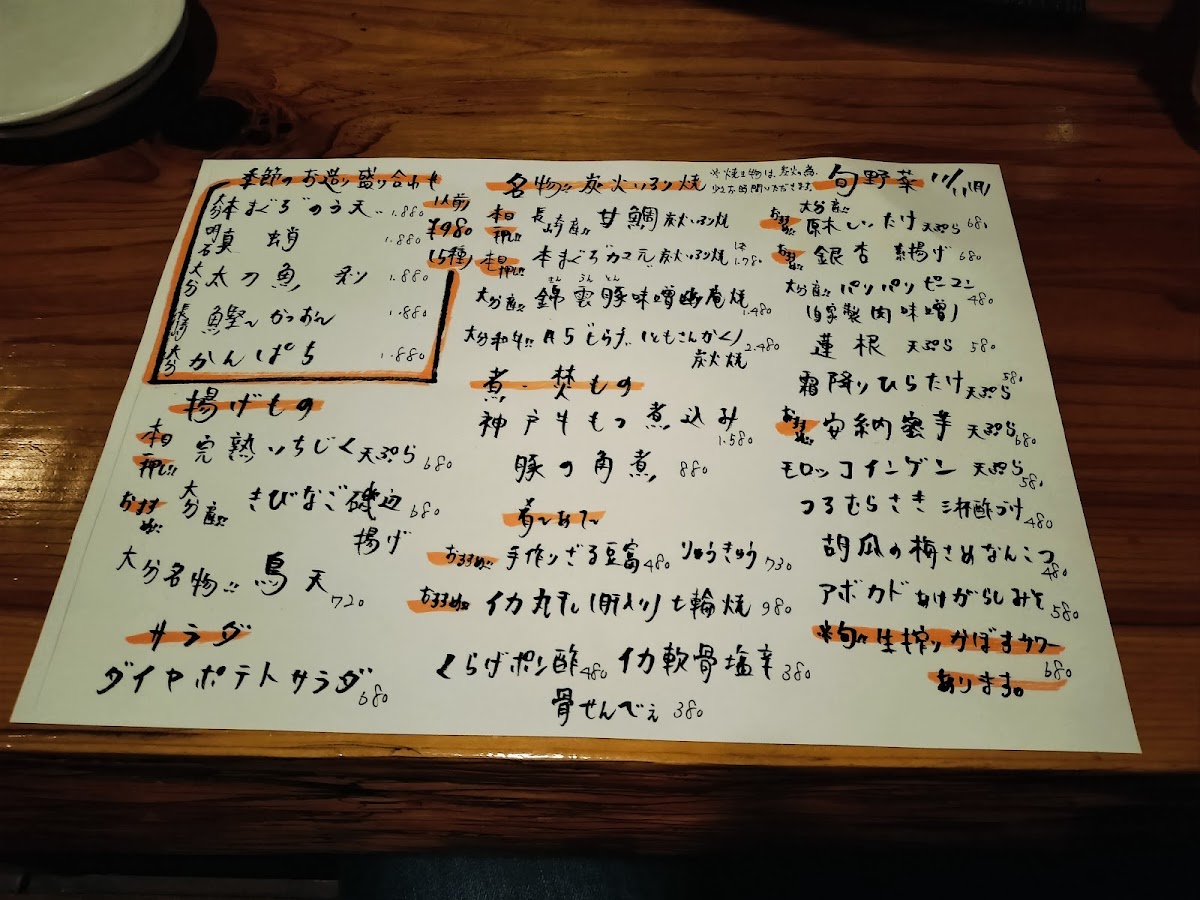 季節のお造り盛り合わせ
1人前
¥980
(5種)
大分 本まぐろ のう天 1.880
明石 真蛸 1.880
大分 太刀魚 炙り 1.880
長崎 鰹 かつお 1.880
大分 かんぱち 1.880
揚げもの
本日一押し!! 完熟いちじく天ぷら 680
おすすめ!! 大分産!! きびなご磯辺揚げ 680
大分名物!! 鳥天 720
サラダ
ダイヤポテトサラダ 680
名物!! 炭火いろり焼
※焼き物は、炭火の為、
少々お時間いただきます
本日一押し!! 長崎産!! 甘鯛 炭火いろり焼
本日一押し!! 本まぐろカマ元 炭火いろり焼 1.780
大分産!! 錦雲豚味噌幽庵焼 1.480
きん うん とん
大分和牛!! A5 とらげ (ともさんかく) 2.480
炭火焼
煮・焚もの
神戸牛もつ煮込み 1.580
豚の角煮 880
おすすめ!! 手作りざる豆富 480 りゅうきゅう 730
おすすめ!! イカ丸干し(肝入り)七輪焼 980
くらげポン酢 480 イカ軟骨塩辛 380
骨せんべえ 380
旬野菜 11/11(月)
おすすめ!! 大分産!! 原木しいたけ 天ぷら 680
おすすめ!! 銀杏 素揚げ 680
大分産!! パリパリピーマン 480
(自家製肉味噌)
蓮根 天ぷら 580
霜降りひらたけ 天ぷら 580
おすすめ!! 安納蜜芋 天ぷら 680
モロッコインゲン 天ぷら 580
つるむらさき 三杯酢づけ 480
胡瓜の梅さめなんこつ 480
アボカド あけがらしみそ 580
※旬!! 生搾りかぼすサワー 680
あります。